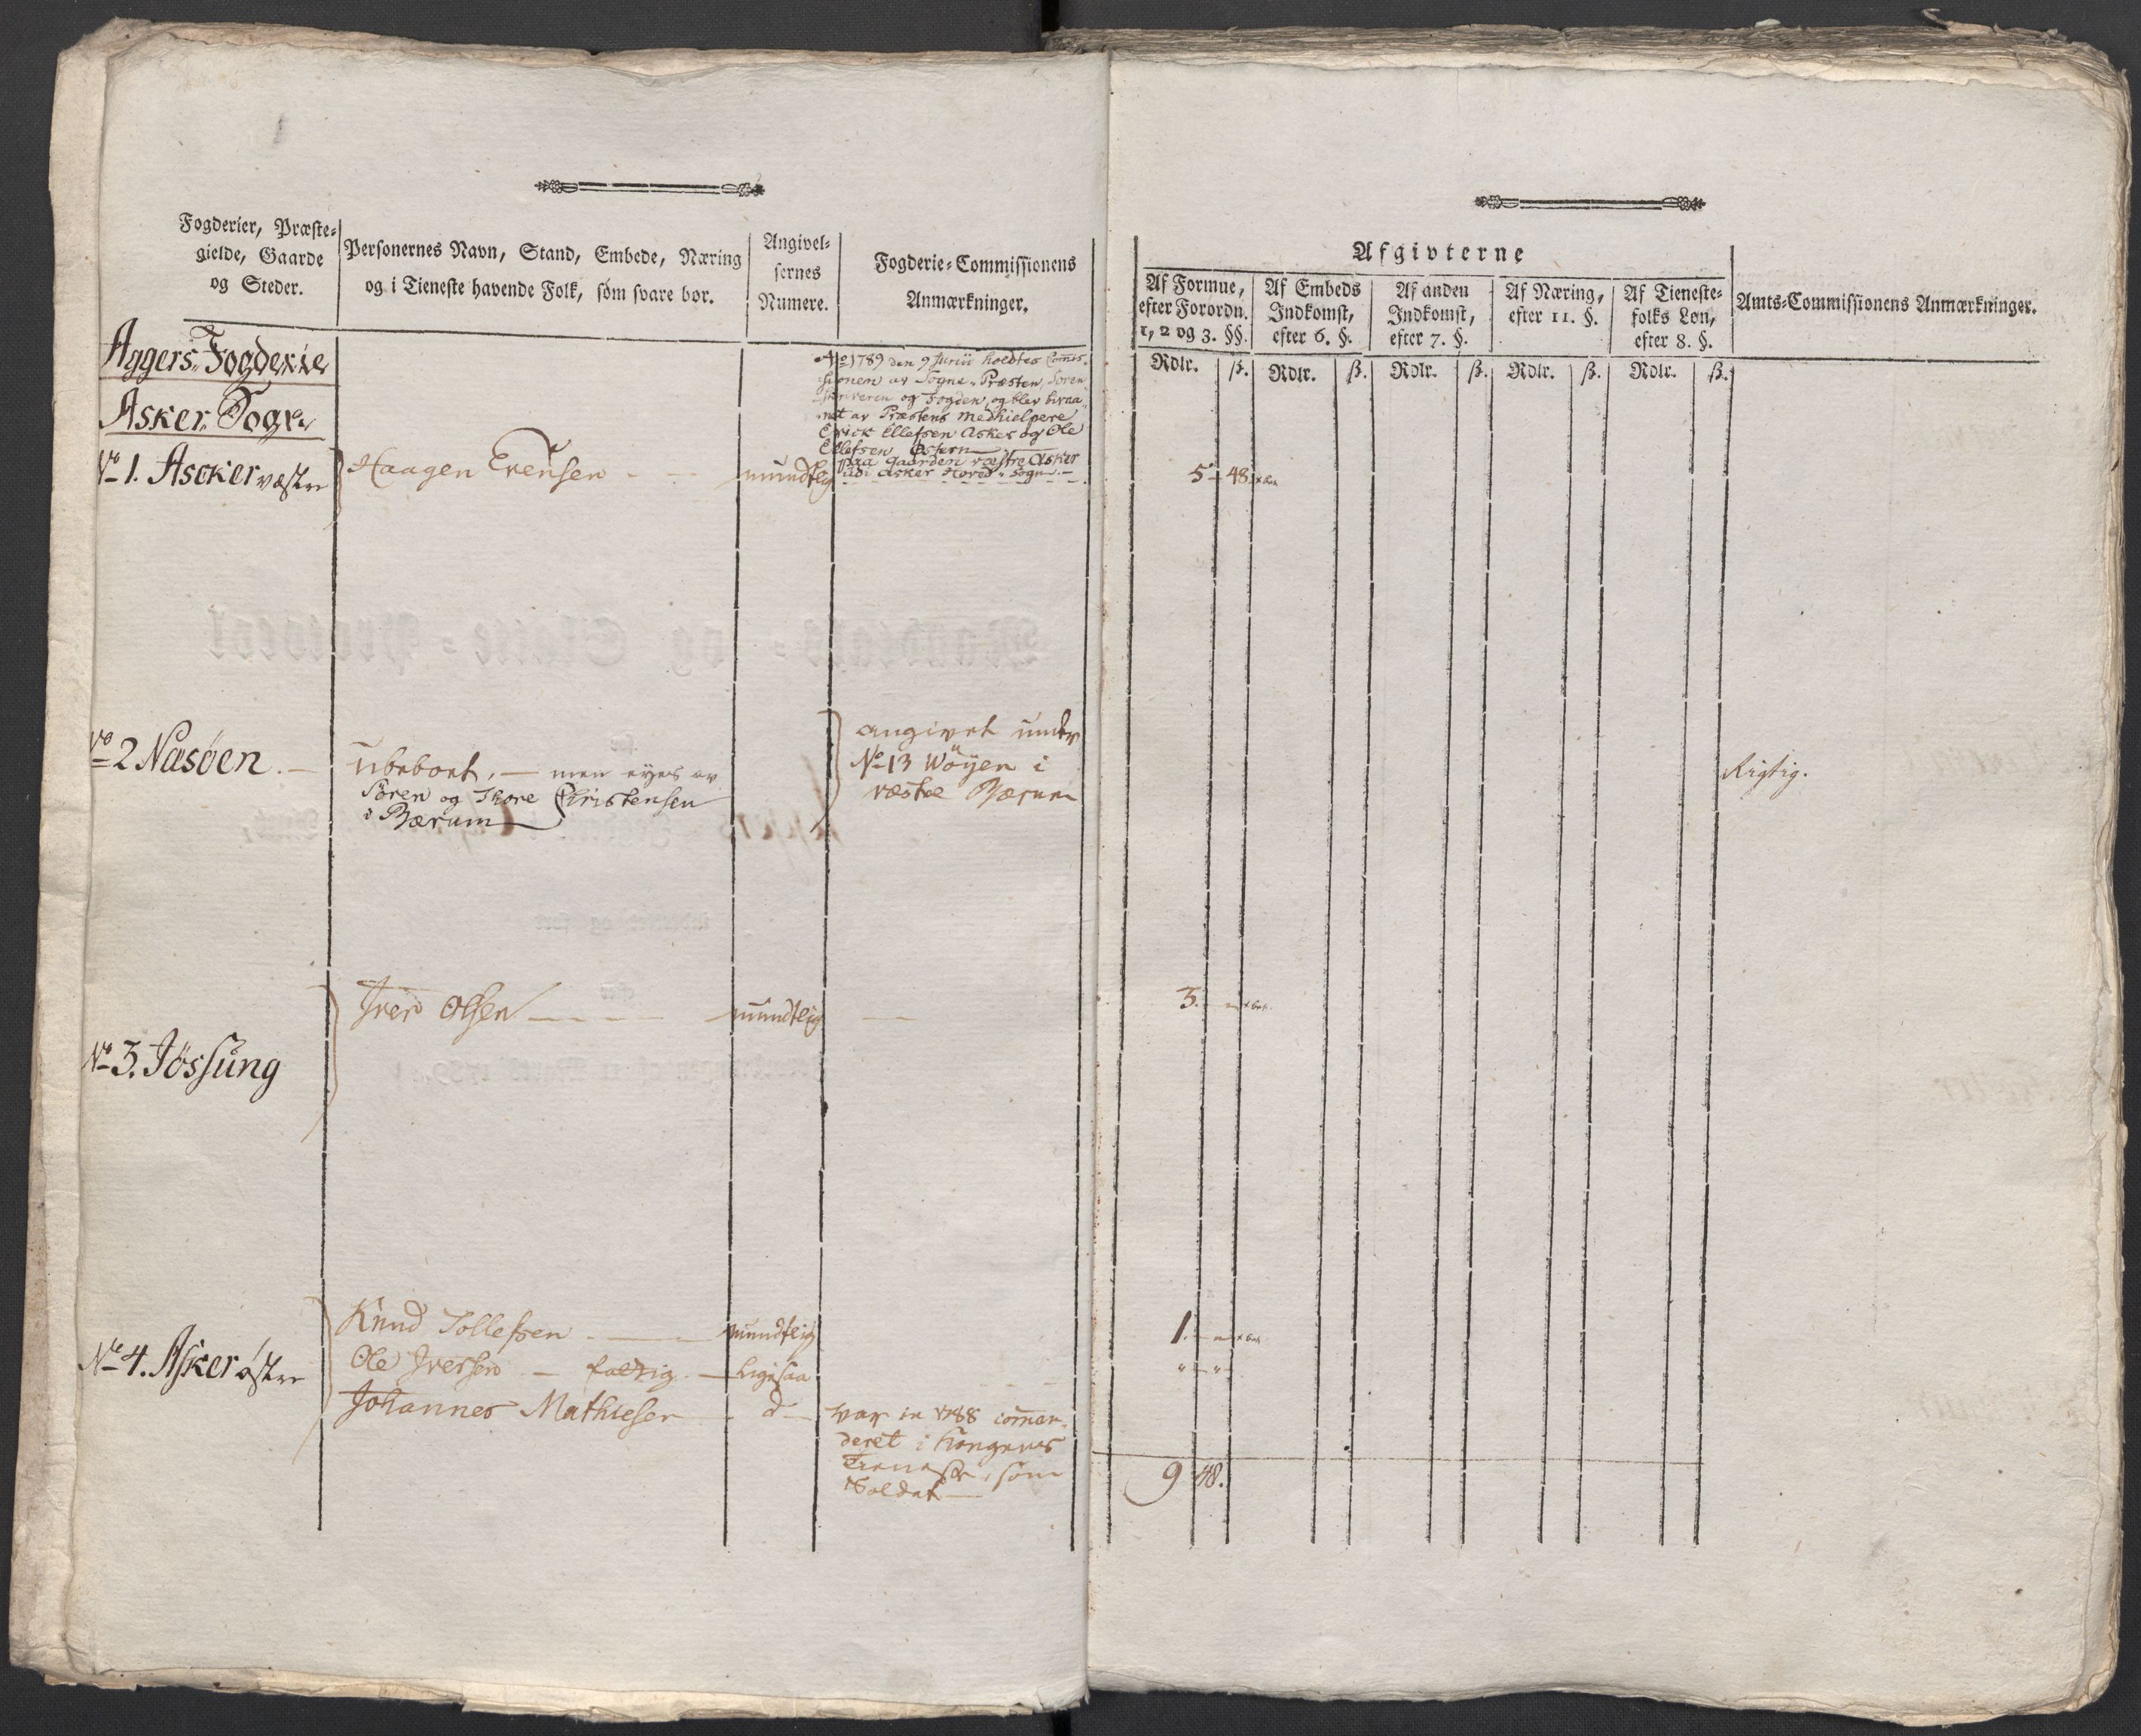 Fogderier, Præste-
gielde, Gaarde
og Steder.
Personernes Navn, Stand, Embede, Næring
og i Tieneste havende Folk, som svare bør.
Angivel-
sernes
Numere.
Fogderie-Commissionens
Anmærkninger.
Aggers Fogderie
Asker Sogn
Ao 1789 den 9 Junii holdtes Commis-
sionen av Sogne-Præsten, Soren-
skriveren og Fogden, og blev bivaa-
net av Præstens medhielpere
Erick Ellefsen Asker og Ole
Ellefsen Østern
paa gaarden væstre Asker
udi Asker Hoved-Sogn.
No 1. Ascker væstre
Haagen Evensen
mundtlig
No 2 Nasöen.
Ubeboet, — men eyes av
Sören og Thore Christensen
i Bærum
angivet under
No 13 Wöyen i
væstre Bærum
No 3. Jössung
Iver Olsen
mundtlig
No 4. Asker østre
Knud Tollefsen
mundtlig
Ole Iversen — fattig
Ligesaa
Johannes Mathiesen
do
var in 1788 comman-
deret i Kongens
Tieneste, som
Soldat
Afgivterne
Af Formue,
efter Forordn.
1, 2 og 3. §§.
Af Embeds
Indkomst,
efter 6. §.
Af anden
Indkomst,
efter 7. §.
Af Næring,
efter 11. §.
Af Tieneste-
folks Løn,
efter 8. §.
Amts-Commissionens Anmærkninger.
Rdlr. ß. Rdlr. ß. Rdlr. ß. Rdlr. ß. Rdlr. ß.
5 - 48
Rigtig.
3. - "
1. - "
" - "
9 48.